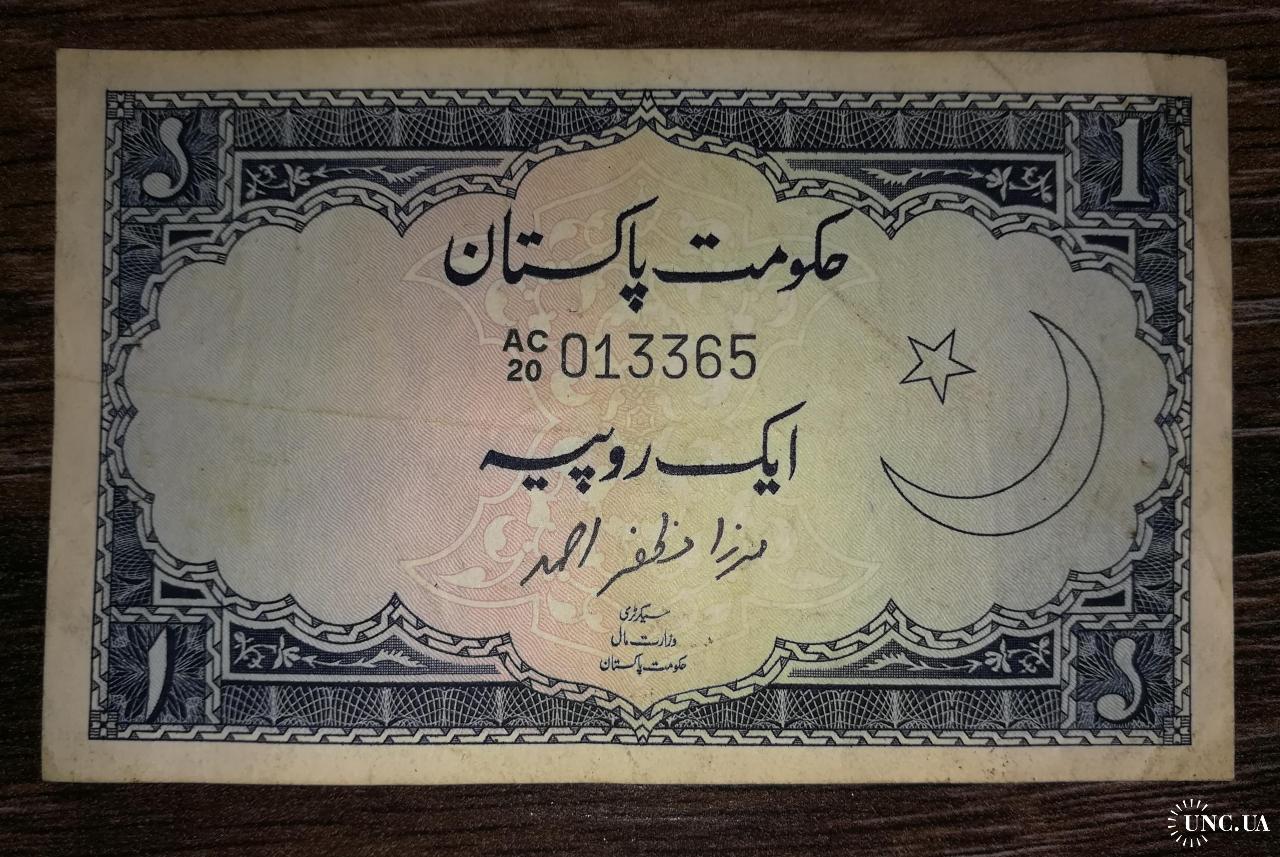 ১ 1
حکومت پاکستان
AC
20 013365
ایک روپیہ
مرزا مظفر احمد
سیکرٹری
وزارت مال
حکومت پاکستان
۱ ১
UNC.UA